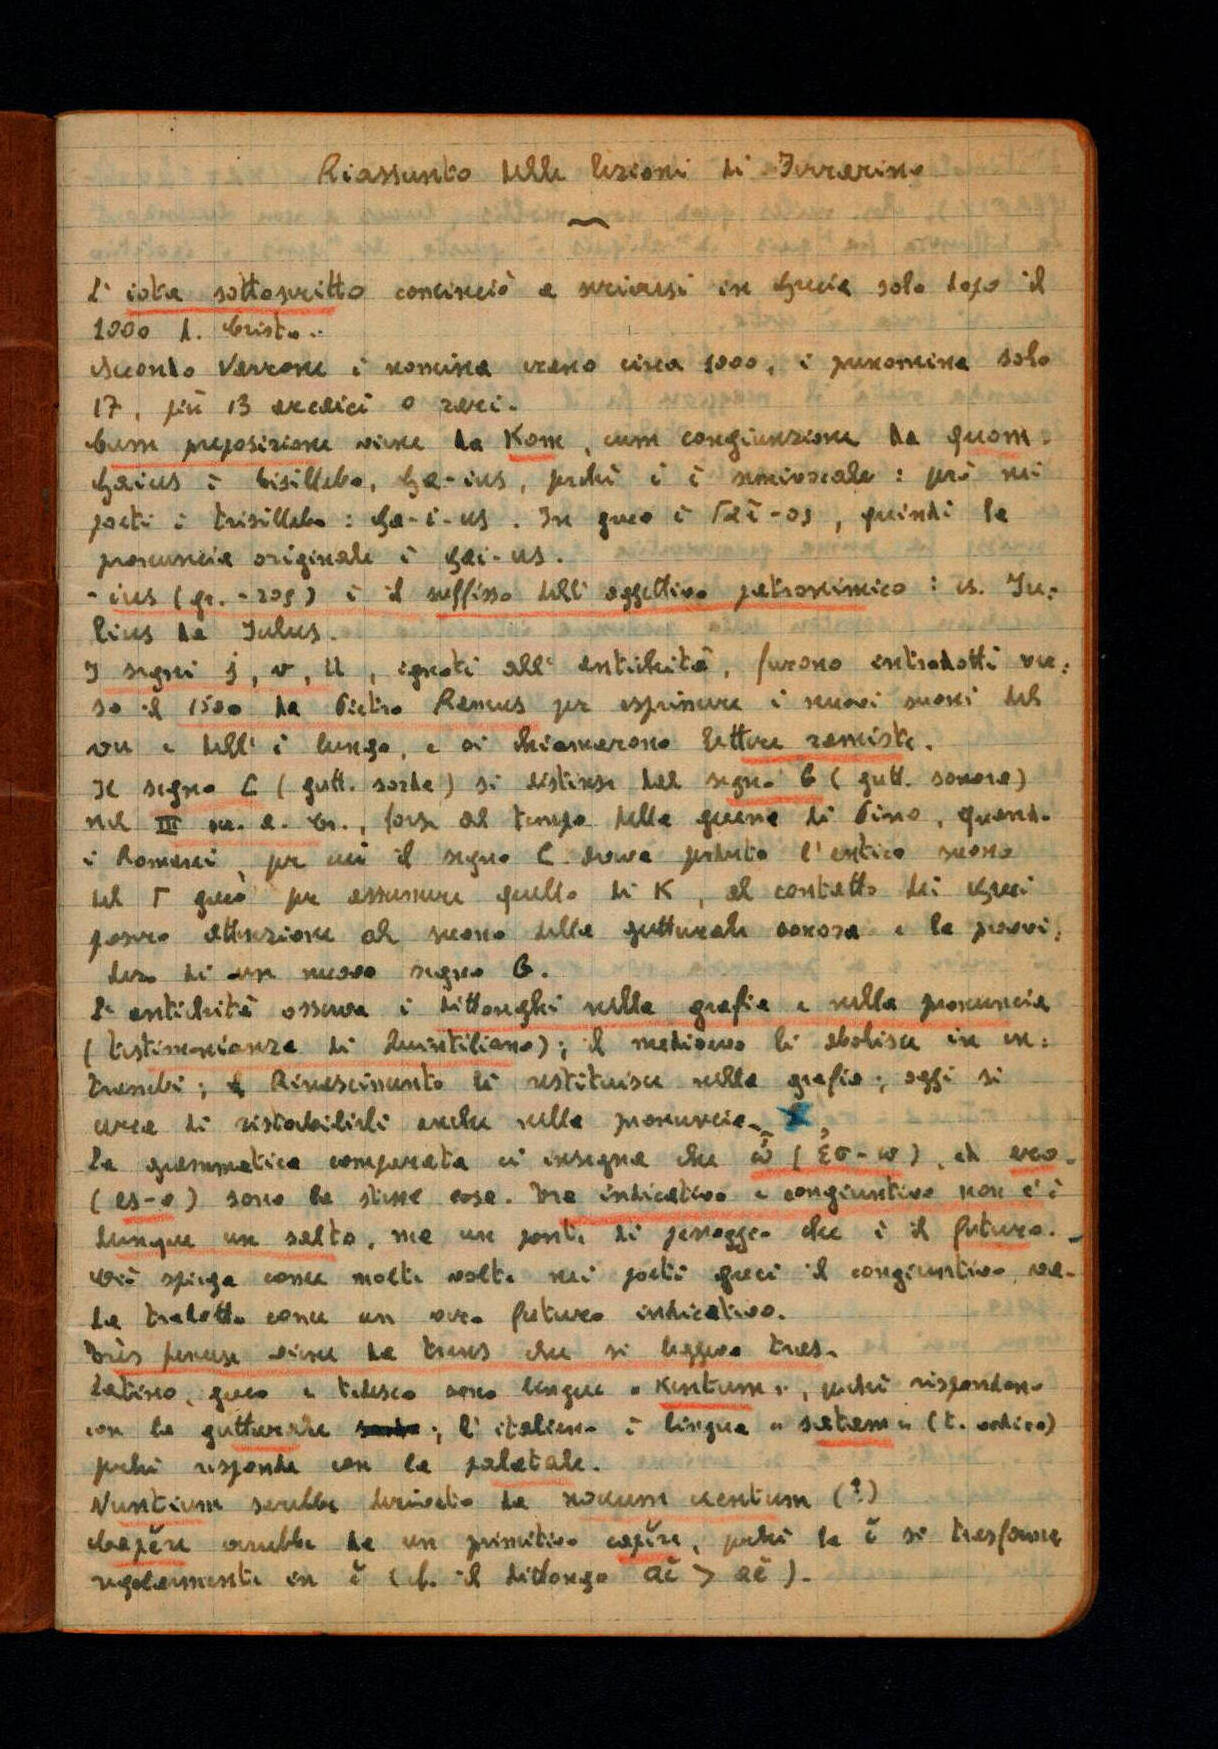 Riassunto delle lezioni di Ferrarino
L' iota sottoscritto cominciò a scriversi in Grecia solo dopo il
1000 d. Cristo.
Secondo Varrone i nomina erano circa 1000, i praenomina solo
17, più 13 arcaici o rari.
Cum preposizione viene da Kom, cum congiunzione da quom.
Gaius è bisillabo, Ga-ius, perché i è semivocale: però nei
poeti è trisillabo: Ga-i-us. In greco è Γαῖ-ος, quindi la
pronuncia originale è Gai-us.
-ius (gr. -ιος) è il suffisso dell' aggettivo patronimico: es. Ju=
lius da Julus.
I segni j, v, U, ignoti all' antichità, furono introdotti ver=
so il 1500 da Pietro Ramus per esprimere i nuovi suoni del
vu e dell' i lungo, e si chiamarono lettere ramiste.
Il segno C (gutt. sorda) si distinse dal segno G (gutt. sonora)
nel III sec. a. Cr., forse al tempo della guerra di Pirro, quando
i Romani, per cui il segno C aveva perduto l'antico suono
del Γ greco per assumere quello di K, al contatto dei Greci
posero attenzione al suono della gutturale sonora e la provvi=
dero di un nuovo segno G.
L' antichità osserva i dittonghi nella grafia e nella pronuncia
(testimonianza di Quintiliano); il medioevo li abolisce in en=
trambi; il Rinascimento li restituisce nella grafia; oggi si
cerca di ristabilirli anche nella pronuncia.
La grammatica comparata ci insegna che ὦ (ἐσ-ω), ed ero
(es-o) sono la stessa cosa. Tra indicativo e congiuntivo non c'è
dunque un salto, ma un ponte di passaggio che è il futuro.
Ciò spiega come molte volte nei poeti greci il congiuntivo va-
da tradotto come un vero futuro indicativo.
Très francese viene da trans che si leggeva tras.
Latino, greco e tedesco sono lingue "Kentum", perché rispondono
con la gutturale; l' italiano è lingua "satem" (t. vedico)
perché risponde con la palatale.
Nuntium sarebbe derivato da novum ventum (?)
Capĕre sarebbe da un primitivo capĭre, perché la ĭ si trasforma
regolarmente in ĕ (cf. il dittongo aĭ > aĕ).